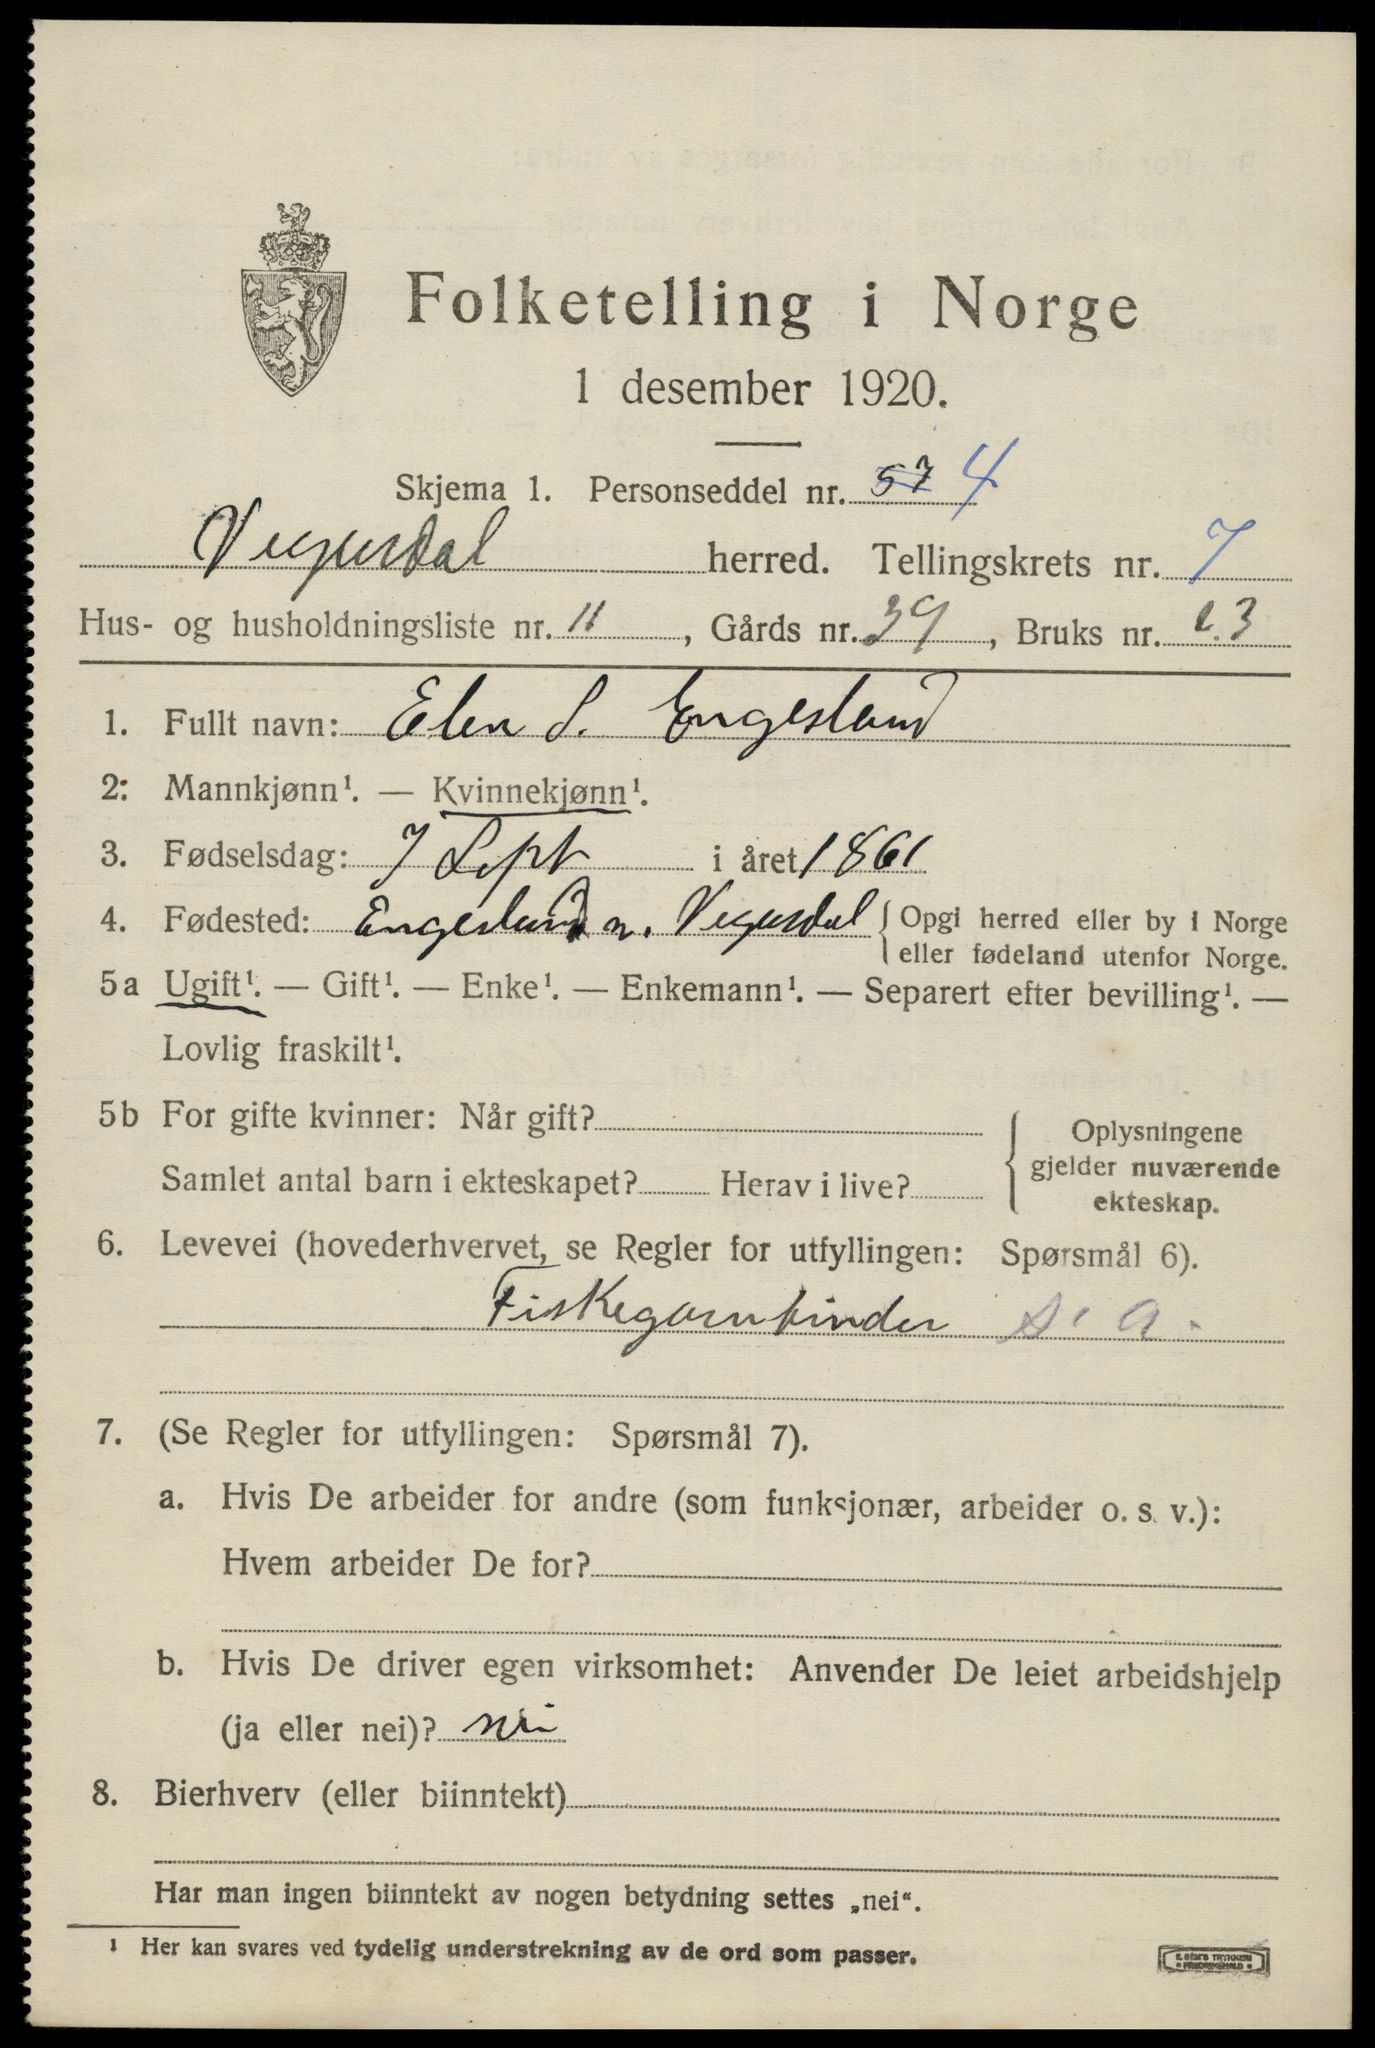 Folketelling i Norge
1 desember 1920.
Skjema 1. Personseddel nr. 57 4
Vegusdal herred. Tellingskrets nr. 7
Hus- og husholdningsliste nr. 11, Gårds nr. 39, Bruks nr. 3
1. Fullt navn: Elen S. Engesland
2. Mannkjønn¹. — Kvinnekjønn¹.
3. Fødselsdag: 7 Sept i året 1861
4. Fødested: Engesland Vegusdal { Opgi herred eller by i Norge
eller fødeland utenfor Norge.
5a Ugift¹. — Gift¹. — Enke¹. — Enkemann¹. — Separert efter bevilling¹. —
Lovlig fraskilt¹.
5b For gifte kvinner: Når gift?
Samlet antal barn i ekteskapet? Herav i live?
{ Oplysningene
gjelder nuværende
ekteskap.
6. Levevei (hovederhvervet, se Regler for utfyllingen: Spørsmål 6).
Fiskegarnbinder s. a.
7. (Se Regler for utfyllingen: Spørsmål 7).
a. Hvis De arbeider for andre (som funksjonær, arbeider o. s. v.):
Hvem arbeider De for?
b. Hvis De driver egen virksomhet: Anvender De leiet arbeidshjelp
(ja eller nei)? nei
8. Bierhverv (eller biinntekt)
Har man ingen biinntekt av nogen betydning settes „nei“.
¹ Her kan svares ved tydelig understrekning av de ord som passer.
E. SEM'S TRYKKERI
FREDRIKSHALD